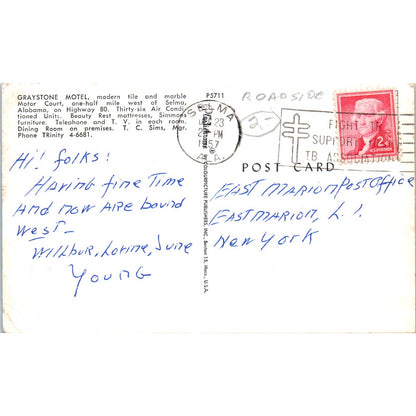 GRAYSTONE MOTEL, modern tile and marble
Motor Court, one-half mile west of Selma,
Alabama, on Highway 80. Thirty-six Air Condi-
tioned Units. Beauty Rest mattresses, Simmons
furniture. Telephone and T. V. in each room.
Dining Room on premises. T. C. Sims, Mgr.
Phone Trinity 4-6681.
P5711
ROADSIDE
SELMA
23
PM
1957
ALA.
FIGHT TB
SUPPORT
TB ASSOCIATION
2¢
POST CARD
COLOURPICTURE PUBLISHERS, INC., Boston 15, Mass., U.S.A.
Hi! folks!
Having fine Time
And now are bound
west-
Wilbur, Lorine, June
Young
East Marion Post Office
East Marion, L.I.
New York